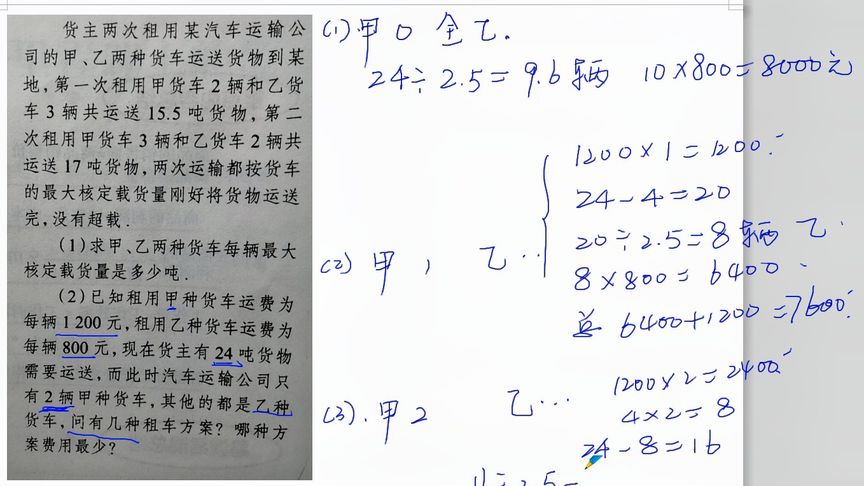 货主两次租用某汽车运输公
司的甲、乙两种货车运送货物到某
地,第一次租用甲货车2辆和乙货
车3辆共运送15.5吨货物,第二
次租用甲货车3辆和乙货车2辆共
运送17吨货物,两次运输都按货车
的最大核定载货量刚好将货物运送
完,没有超载.
(1)求甲、乙两种货车每辆最大
核定载货量是多少吨.
(2)已知租用甲种货车运费为
每辆1 200元,租用乙种货车运费为
每辆800元,现在货主有24吨货物
需要运送,而此时汽车运输公司只
有2辆甲种货车,其他的都是乙种
货车,问有几种租车方案?哪种方
案费用最少?
(1)甲0 全乙.
24÷2.5=9.6辆 10×800=8000元
1200×1=1200
24-4=20
(2)甲1 乙··
20÷2.5=8辆 乙
8×800=6400
总 6400+1200=7600
1200×2=2400
(3).甲2 乙···
4×2=8
24-8=16